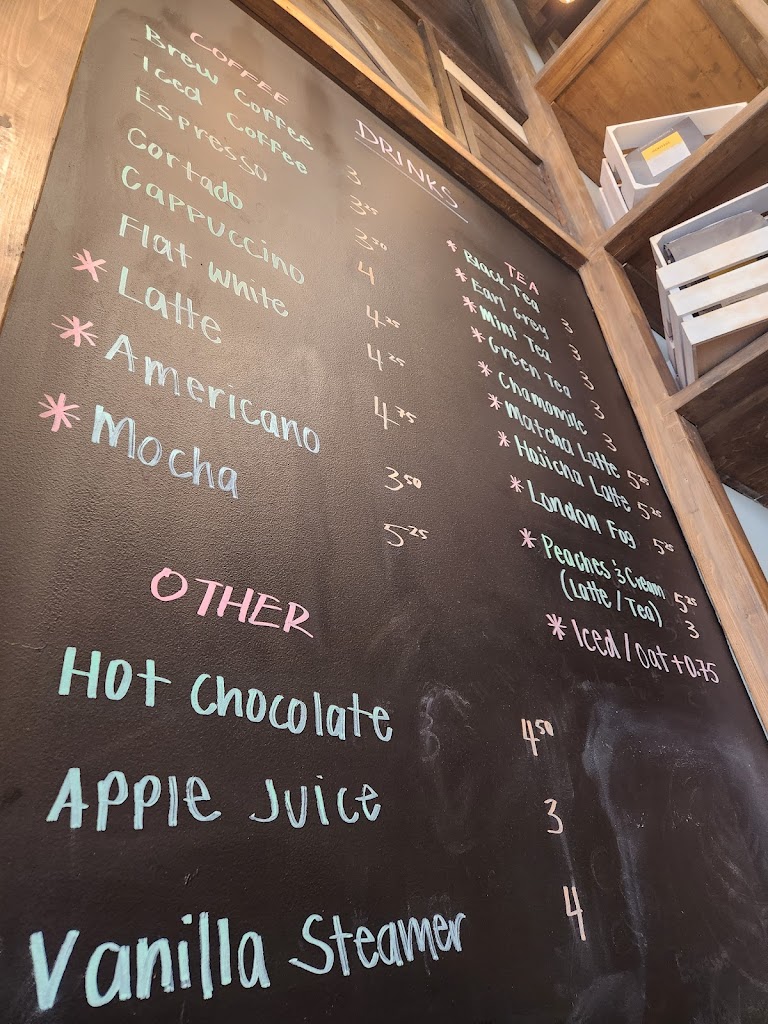 DRINKS
COFFEE
Brew Coffee 3
Iced Coffee 3.25
Espresso 3.50
Cortado 4
Cappuccino 4.25
Flat White 4.25
* Latte 4.75
* Americano 3.50
* Mocha 5.25
TEA
* Black Tea 3
* Earl Grey 3
* Mint Tea 3
* Green Tea 3
* Chamomile 3
* Matcha Latte 5.25
* Hojicha Latte 5.25
* London Fog 5.25
* Peaches & Cream 5.25
(Latte / Tea) 3
* Iced / oat + 0.75
OTHER
Hot Chocolate 4.50
Apple Juice 3
Vanilla Steamer 4